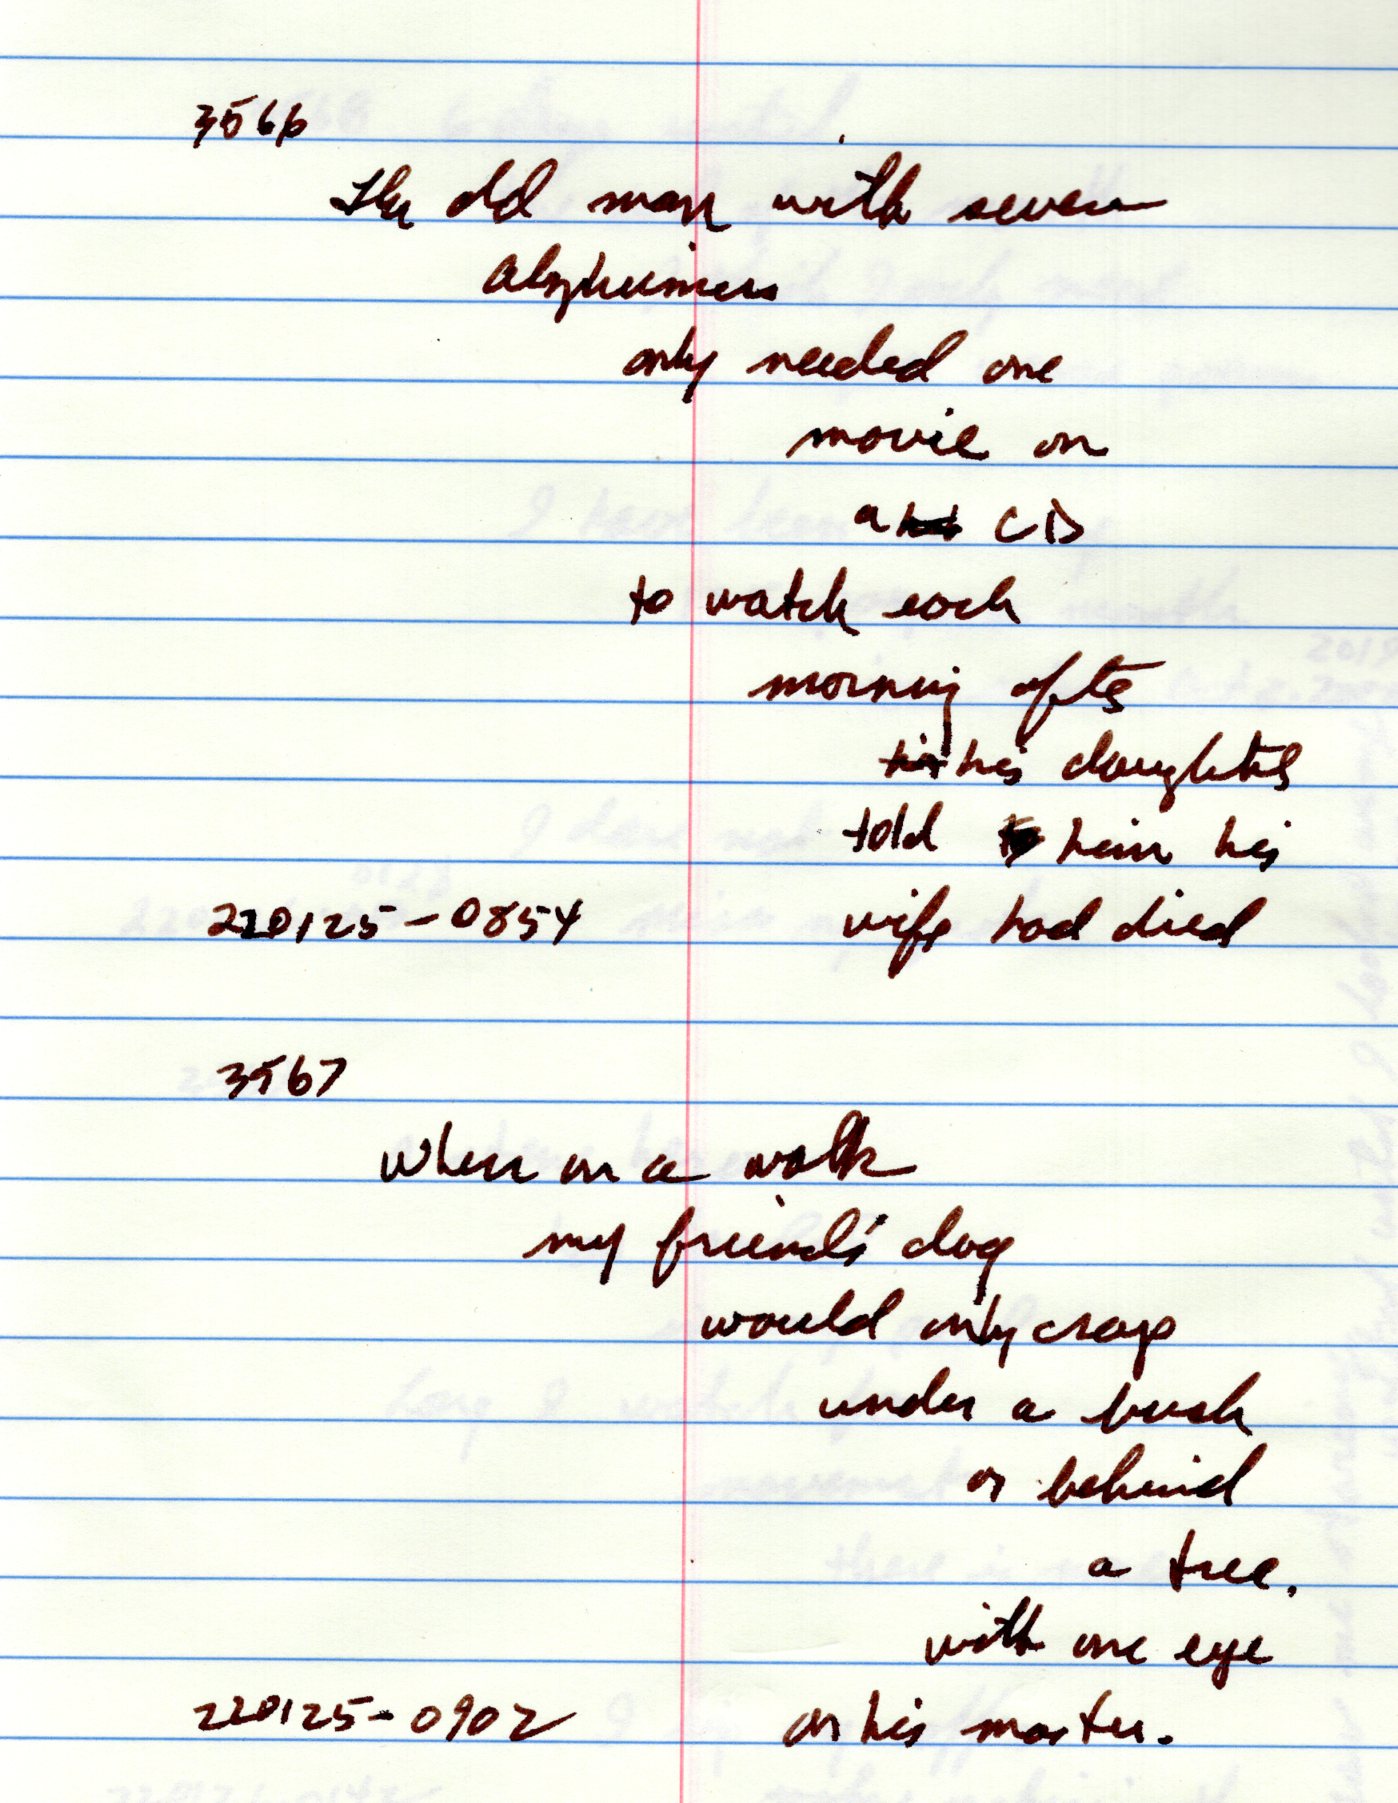 3566
the old man with severe
alzheimers
only needed one
movie on
a CD
to watch each
morning after
his daughter
told him his
220125-0854 wife had died
3567
when on a walk
my friend's dog
would only crap
under a bush
or behind
a tree.
with one eye
220125-0902 on his master.